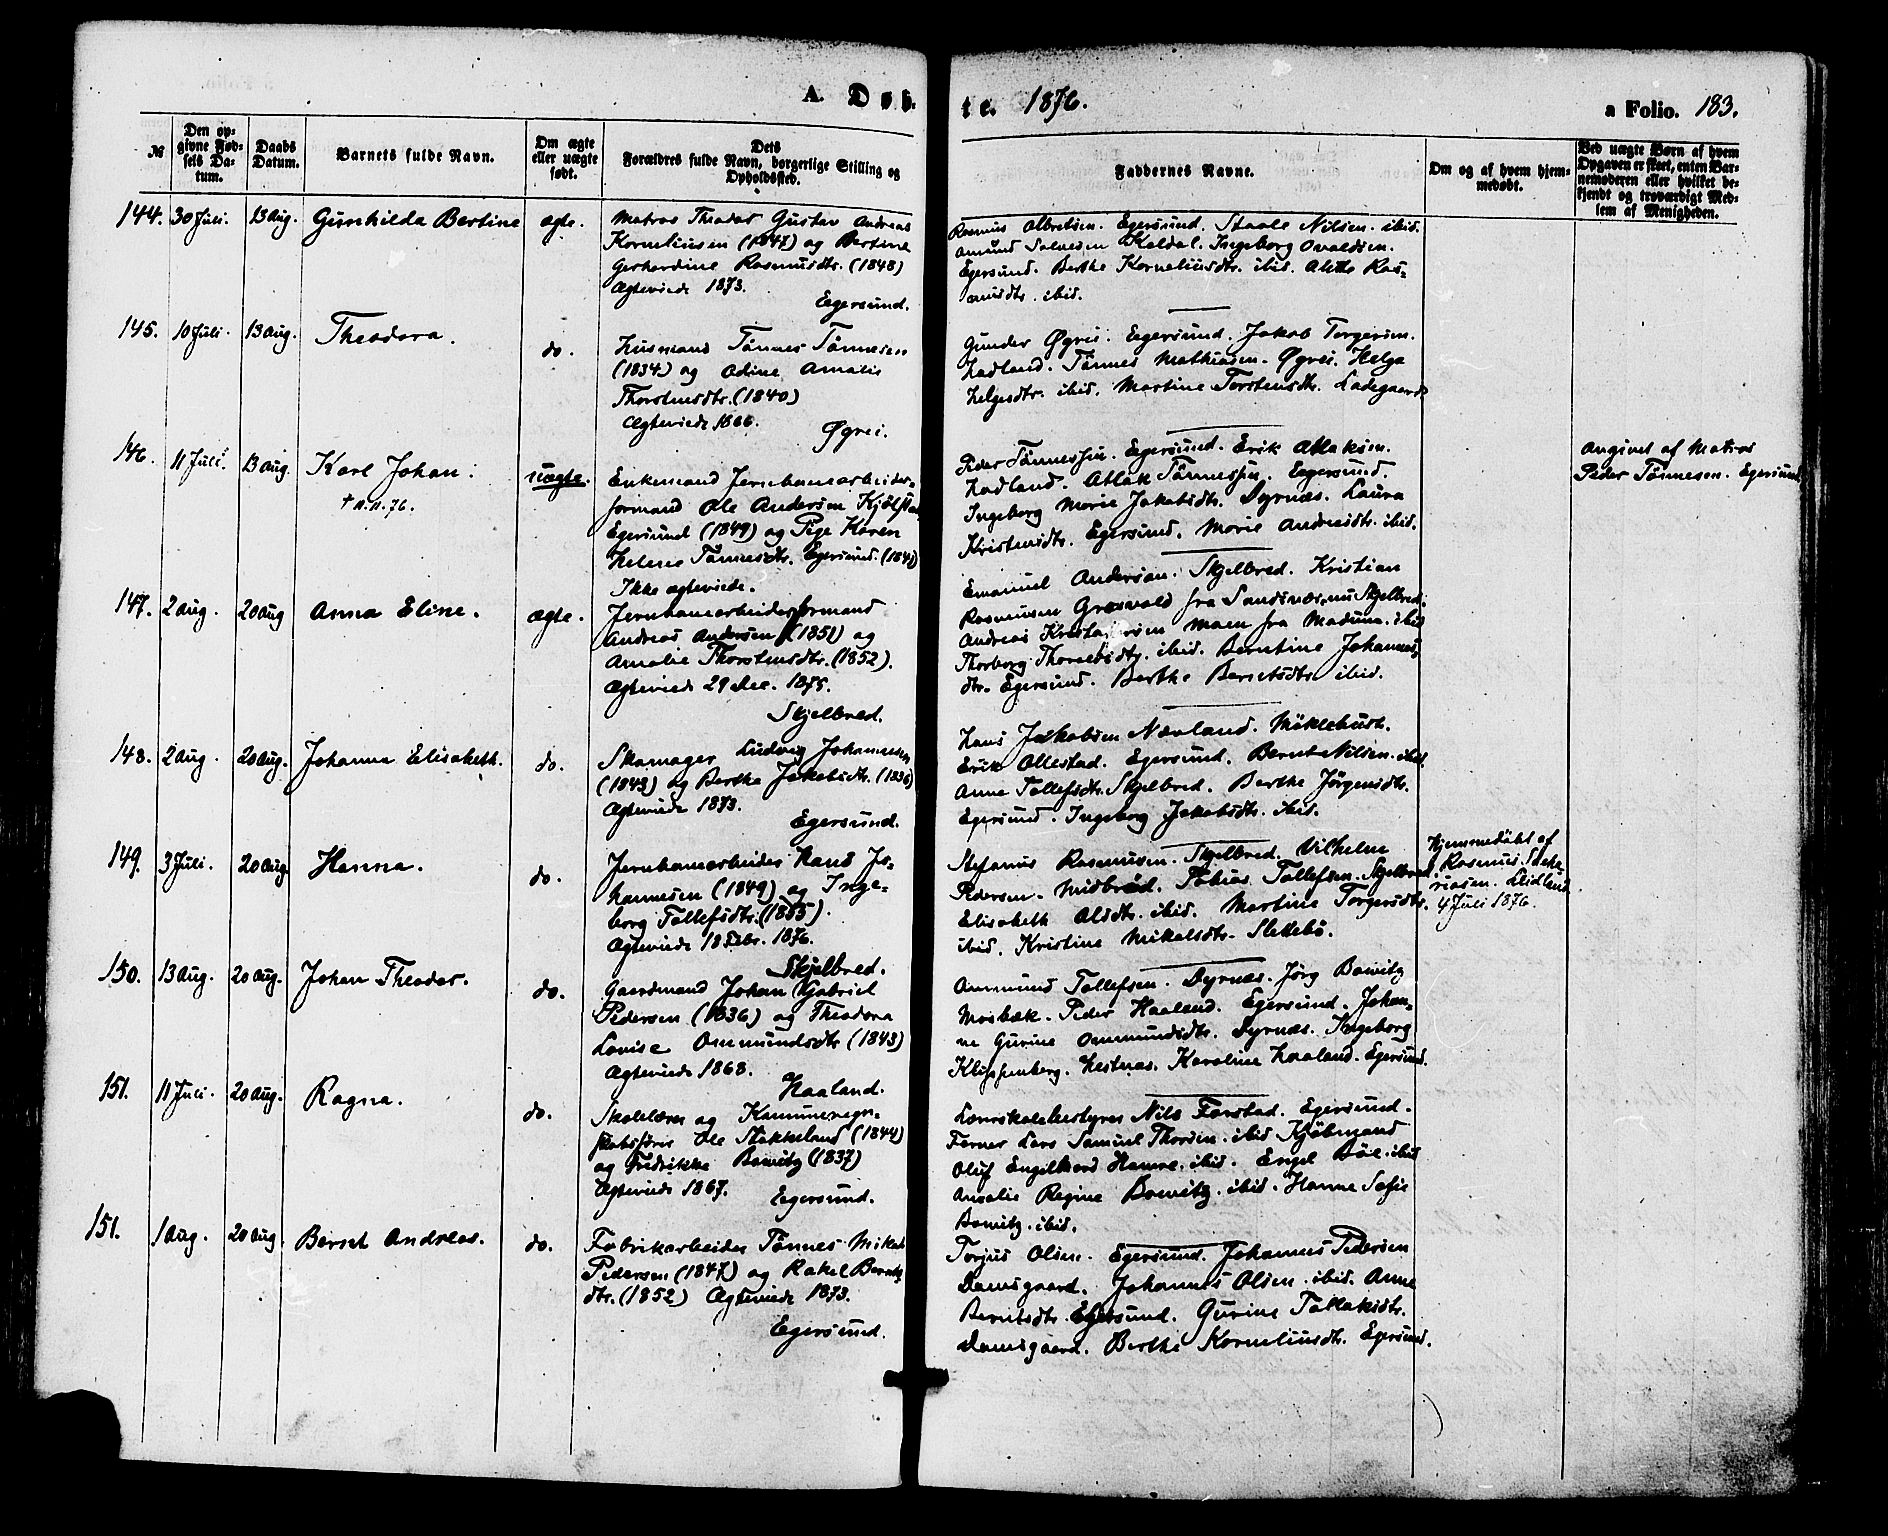 A. Døb-
te. 1876.
a Folio. 183.
№
Den op-
givne Fød-
sels Da-
tum.
Daabs
Datum.
Barnets fulde Navn.
Om ægte
eller uægte
født.
Dets
Forældres fulde Navn, borgerlige Stilling og
Opholdssted.
Faddernes Navne.
Om og af hvem hjem-
medøbt.
Ved uægte Børn af hvem
Opgaven er skeet, enten Bar-
nemoderen eller hvilket be-
kjendt og troværdigt Med-
lem af Menigheden.
144. 30 Juli. 13 Aug. Gunhilda Bertine ægte.
Matros Theodor Gustav Andreas
Korneliussen (1847) og Bertine
Gerhardine Rasmusdtr. (1848)
Ægteviede 1873.
Egersund.
Rasmus Olbretsen. Egersund. Staale Nilsen. ibid.
Amund Salvesen Koldal. Ingeborg Ovaldsen.
Egersund. Berthe Korneliusdtr. ibid. Alette Ras-
musdtr. ibid.
145. 10 Juli. 13 Aug. Theodora. do.
Husmand Tønnes Tønnesen
(1834) og Odine Amalie
Thorstensdtr. (1840)
Ægteviede 1866.
Øgrei.
Gunder Øgrei. Egersund. Jakob Torgersen.
Hadland. Tønnes Mathiasen. Øgrei. Helga
Helgesdtr. ibid. Martine Torstensdtr. Ladegaard
146. 11 Juli. 13 Aug. Karl Johan.
† 11.11.76.
uægte.
Enkemand Jernbanearbeider-
formand Ole Andersen Kjølstad
Egersund (1849) og Pige Karen
Helene Tønnesdtr. Egersund.
Ikke ægteviede.
Peder Tønnessen. Egersund. Erik Atlaksen.
Hadland. Atlak Tønnessen. Egersund.
Ingeborg Marie Jakobsdtr. Dyrnæs. Laura
Kristensdtr. Egersund. Marie Andreasdtr. ibid.
Angivet af Matros
Peder Tønnesen. Egersund
147. 2 Aug. 20 Aug Anna Eline. ægte.
Jernbanearbeiderformand
Andreas Andersen (1851) og
Amalie Thorstensdtr. (1852).
Ægteviede 29 Dec. 1875.
Skjelbred.
Emanuel Anderson. Skjelbred. Kristian
Rasmussen Græsvold fra Sandsnæs, nu Skjelbred.
Andreas Moen fra Madunu. ibid
Thorborg ibid. Berntine Johannes-
dtr. Egersund. Berthe Berntsdtr ibid.
148. 2 Aug. 20 Aug. Johanna Elisabeth. do.
Skomager Ludvig Johannesen
(1843) og Berthe Jakobsdtr. (1836)
Ægteviede 1873.
Egersund.
Hans Jakobsen Nævland. Møklebust.
Erik Ollestad. Egersund. Bernt Nilsen. ibid
Anne Tollefsdtr. Skjelbred. Berthe Jørgensdtr.
Egersund. Ingeborg Jakobsdtr. ibid.
149. 3 Juli. 20 Aug. Hanna. do.
Jernbanearbeider Hans Jo-
hannesen (1849) og Inge-
borg Tollefsdtr. (1855).
Ægteviede 18 Febr. 1876.
Skjelbred.
Stefanus Rasmussen. Skjelbred. Vilhelm
Pedersen. Midbrød. Tobias Tollefsen. Skjelbred
Elisabeth Olsdtr. ibid. Martine Torgersdtr.
ibid. Kristine Mikalsdtr. Slettebø.
Hjemmedøbt af
Rasmus Sake-
riasen. Eidland
4 Juli 1876.
150. 13 Aug. 20 Aug. Johan Theodor. do.
Gaardmand Johan Gabriel
Pedersen (1836) og Theodora
Lovise Ommundsdtr (1843)
Ægteviede 1868.
Haaland.
Ommund Tollefsen. Dyrnæs. Jörg Bowitz
Mosbæk. Peder Haaland. Egersund. Johan-
ne Gurine Ommundsdtr. Dyrnæs. Ingeborg
Klippenberg. Hestnæs. Karoline Haaland. Egersund.
151. 11 Juli. 20 Aug. Ragna. do.
Skolelærer og Kommuneregn-
skabsfører Ole Stokkeland (1844)
og Fredrikke Bowitz (1837)
Ægteviede 1867.
Egersund.
Lærerskolebestyrer Nils Forstad. Egersund.
Farver Lars Samuel Thorsen. ibid Kjøbmand
Oluf Engelhard Hamre. ibid. Engel Bøe. ibid
Amalie Regine Bowitz. ibid. Hanne Sofie
Bowitz. ibid.
151. 1 Aug. 20 Aug. Bernt Andreas. do.
Fabrikarbeider Tønnes Mikal
Pedersen (1847) og Rakel Bernts-
dtr. (1852) Ægteviede 1873.
Egersund.
Torjus Olsen. Egersund. Johannes Pedersen
Damsgaard. Johannes Olsen. ibid. Anne
Berntsdtr. Egersund. Gurine Tollaksdtr.
Damsgaard. Berthe Korneliusdtr. Egersund.